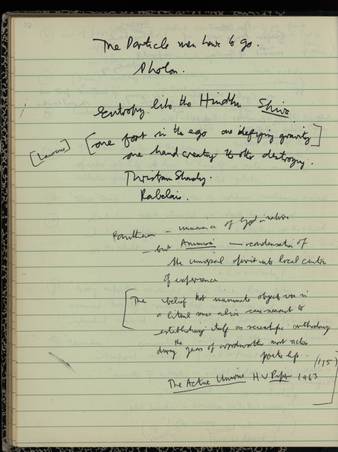 The Particle man have to go.
Photon.
Entropy like the Hindhu Shiva
[one foot in the ego one defying gravity]
one hand creating the other destroying.
Tristram Shandy.
Rabelais.
Pantheism - immanence of God in nature
- but Animism - condensation of
the universal spirit into local centres
of experience
[The belief that inanimate objects are in
a literal sense alive was nearest to
establishing itself as
during the years of Wordsworth's most
The Active Universe H W Piper 1963